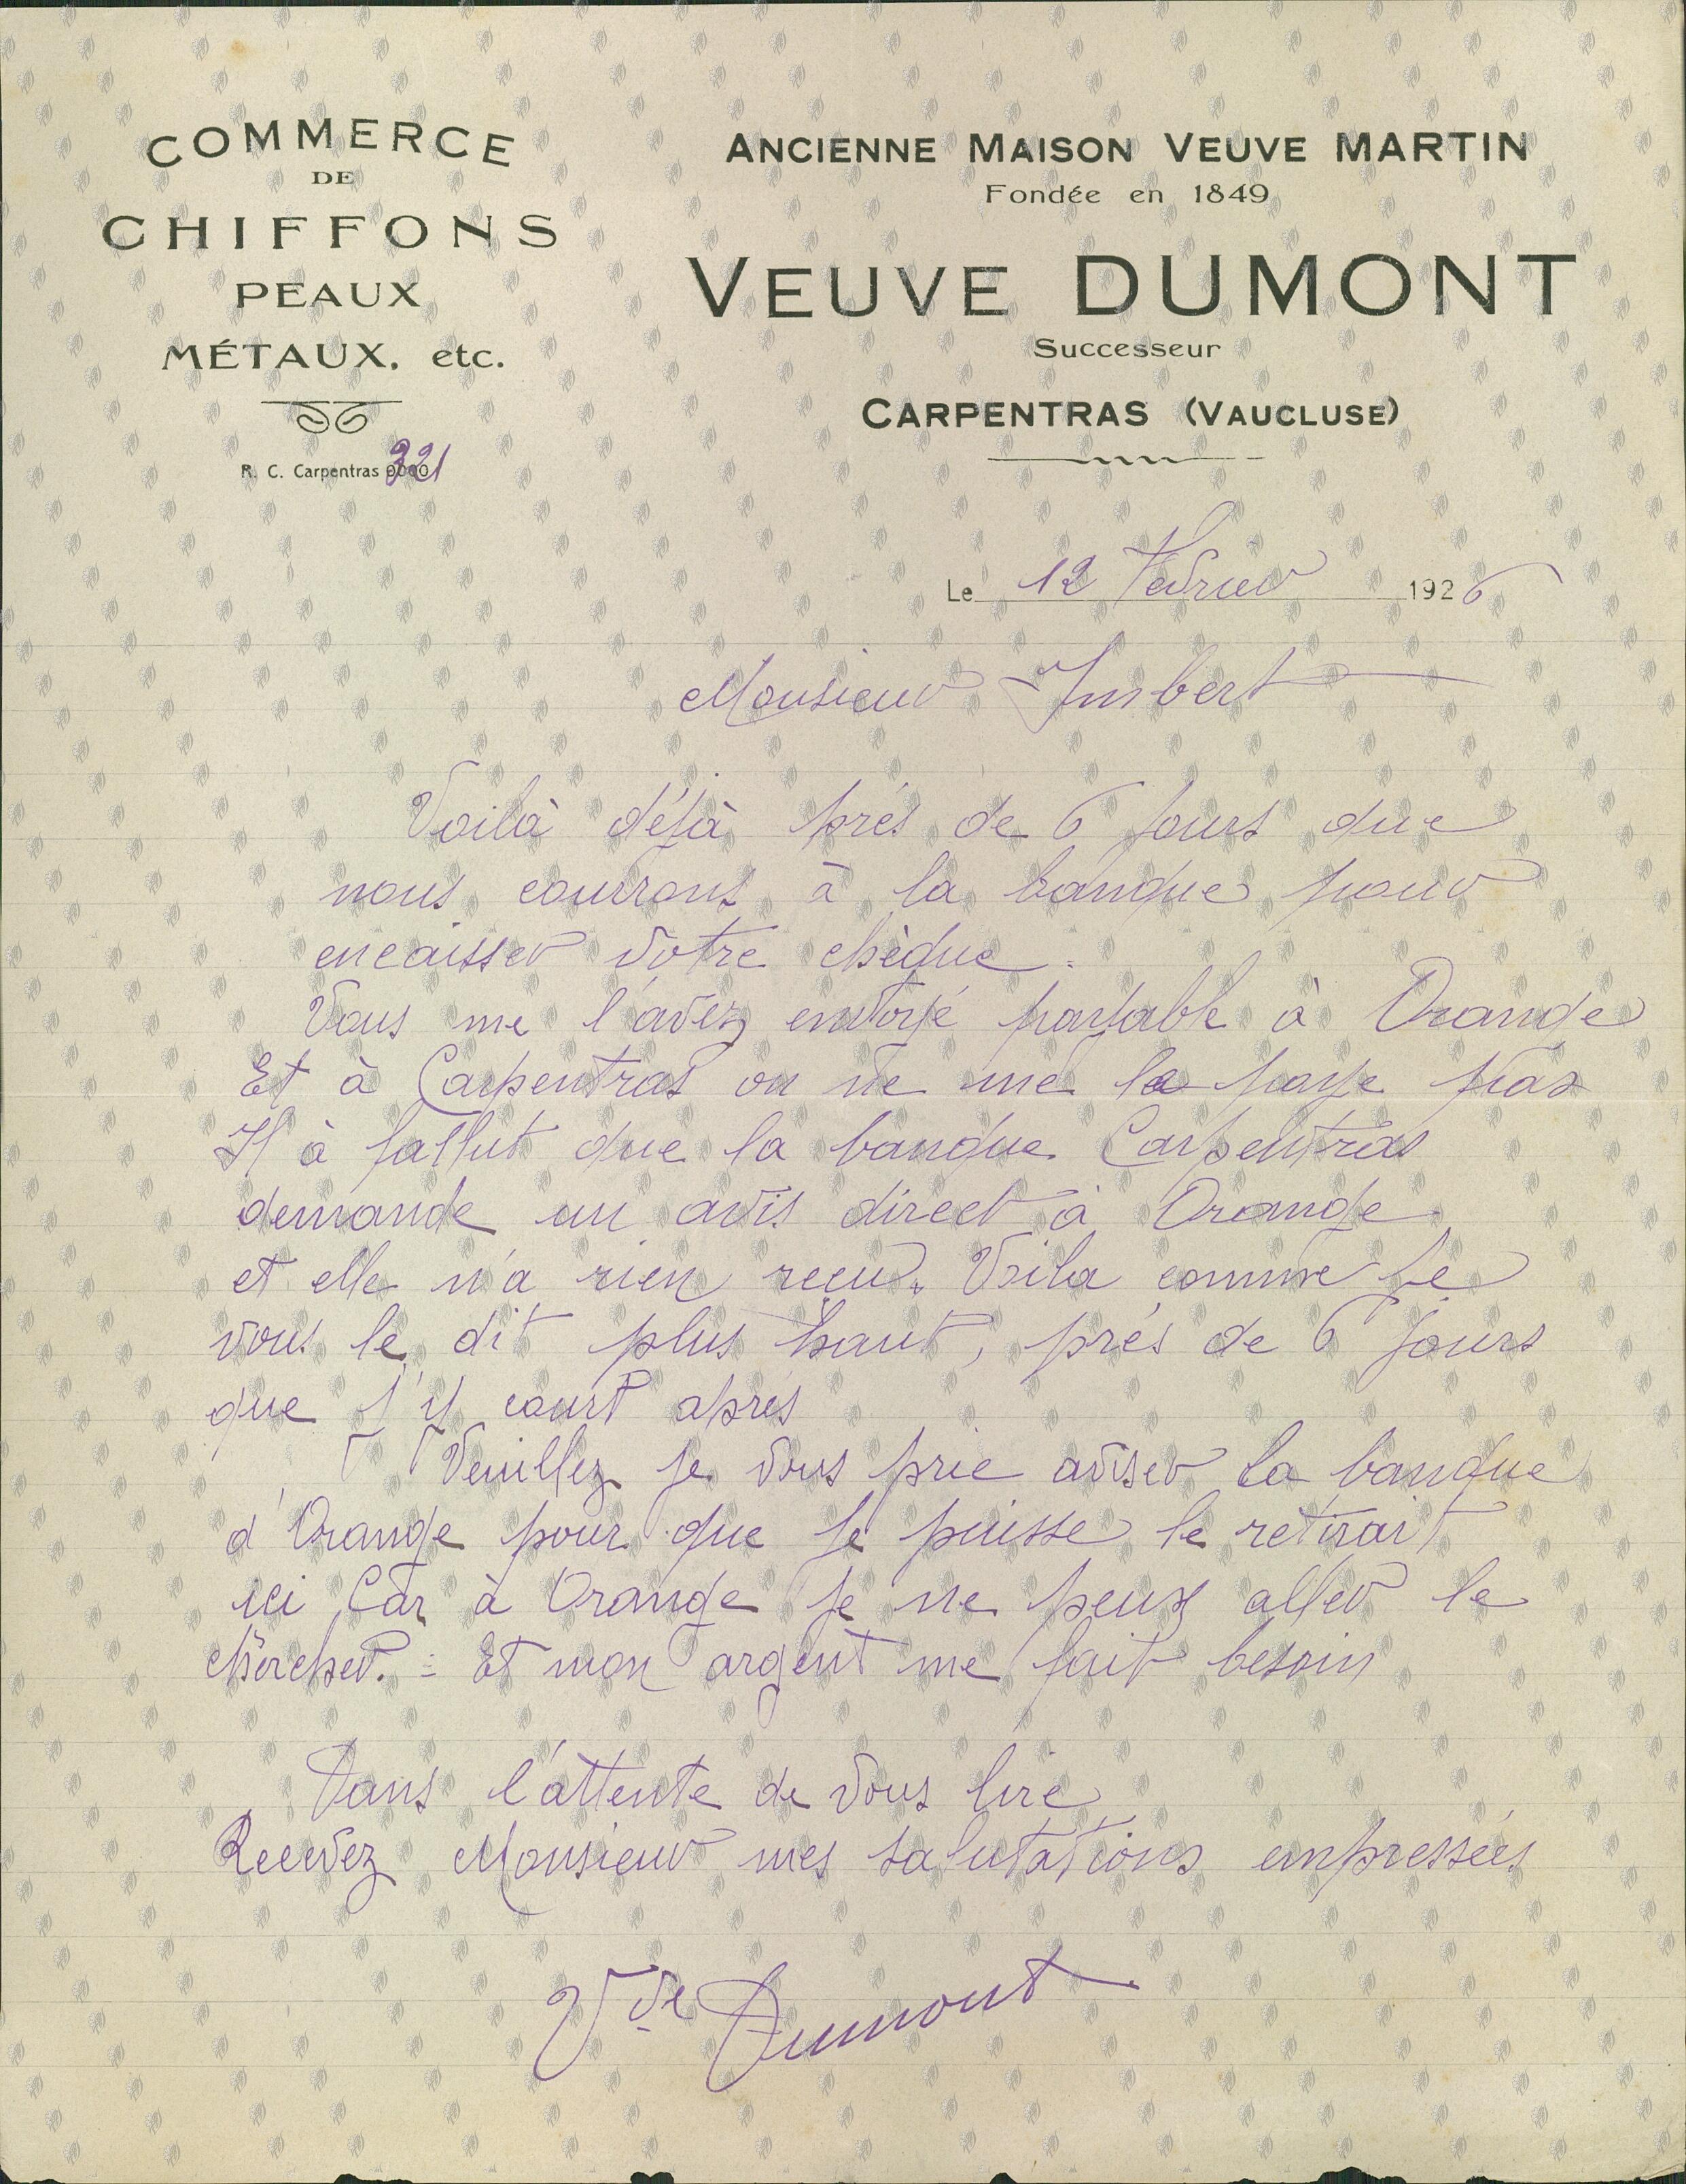 COMMERCE
DE
CHIFFONS
PEAUX
MÉTAUX, etc.
R. C. Carpentras 321
ANCIENNE MAISON VEUVE MARTIN
Fondée en 1849
VEUVE DUMONT
Successeur
CARPENTRAS (VAUCLUSE)
Le 12 Février 1926
Monsieur Imbert
Voilà déjà près de 6 jours que
nous courrons à la banque pour
encaisser votre chèque.
Vous me l'avez envoyé payable à Orange
Et à Carpentras on ne me le paye pas
Il à fallut que la banque Carpentras
demande un avis direct à Orange
et elle n'a rien reçu. Voila comme je
vous le dit plus haut, près de 6 jours
que j'y court après
Veuillez je vous prie aviser la banque
d'Orange pour que je puisse le retirait
ici Car à Orange je ne peux aller le
chercher. = Et mon argent me fait besoin
Dans l'attente de vous lire
Recevez Monsieur mes salutations empressées
Vve Dumont